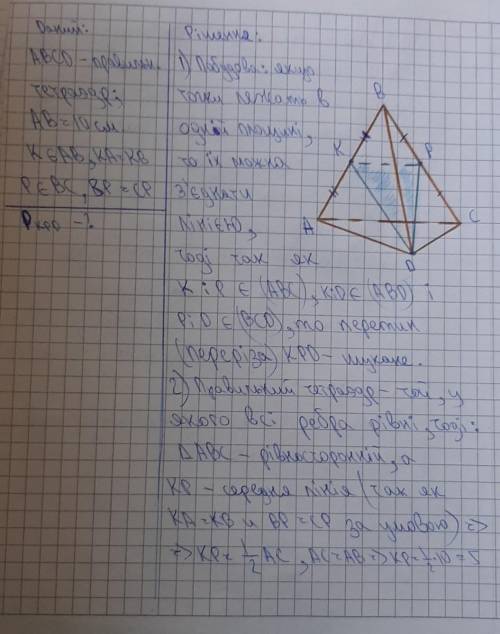 Даний:
ABCD – правильн.
тетраедр;
AB = 10 см
K∈AB, KA = KB
P∈BC, BP = CP
P KPD – ?
Рішення:
1) Побудова: якщо
точки лежать в
одній площині,
то їх можна
з'єднати
лінією,
тоді так як
K і P ∈ (ABC), K і D ∈ (ABD) і
P і D ∈ (BCD), то перетин
(переріз) KPD – шукане.
2) Правильний тетраедр – той, у
якого всі ребра рівні, тоді:
△ABC – рівносторонній, а
KP – середня лінія (так як
KA = KB и BP = CP за умовою) =>
=> KP = 1/2 AC, AC = AB => KP = 1/2 · 10 = 5
B
K
P
A
C
D